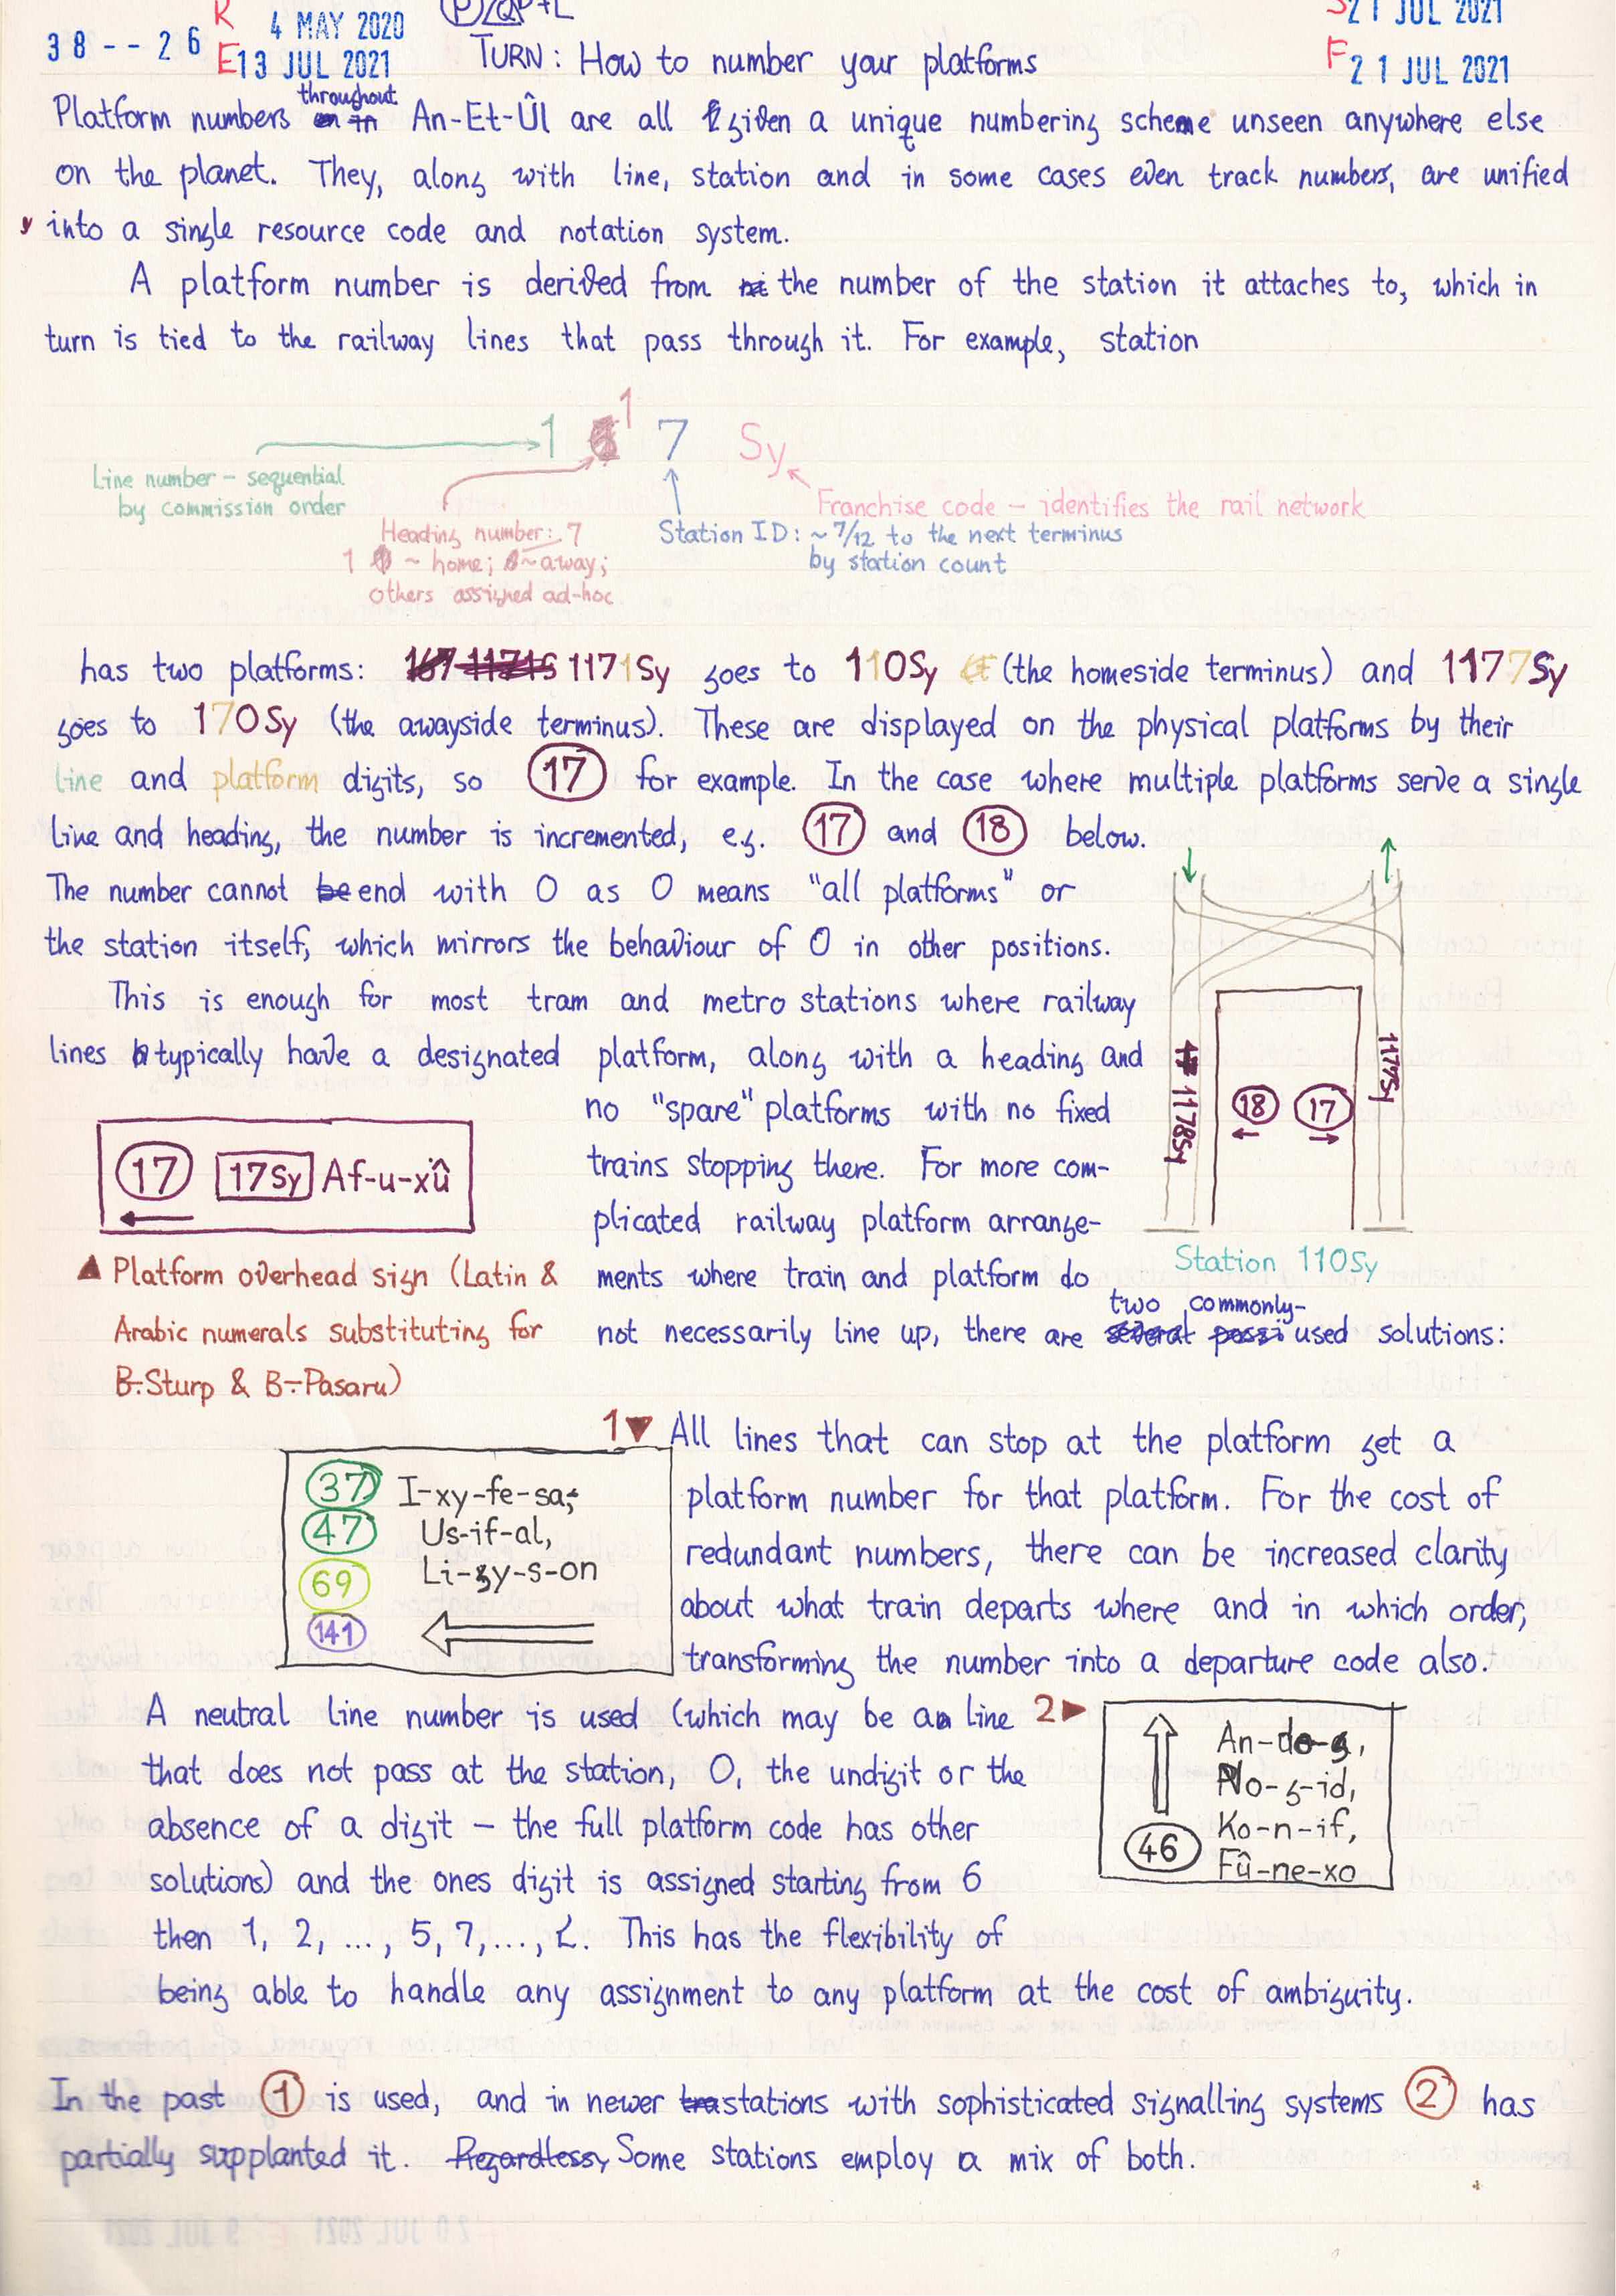 38--26 R 4 MAY 2020 S21 JUL 2021
E13 JUL 2021 TURN: How to number your platforms F21 JUL 2021
Platform numbers throughout An-Et-Ûl are all given a unique numbering scheme unseen anywhere else
on the planet. They, along with line, station and in some cases even track numbers, are unified
into a single resource code and notation system.
A platform number is derived from the number of the station it attaches to, which in
turn is tied to the railway lines that pass through it. For example, station
1 1 7 Sy
Line number – sequential
by commission order
Franchise code – identifies the rail network
Heading number: 7
1 ~ home; ~away;
others assigned ad-hoc
Station ID: ~7/12 to the next terminus
by station count
has two platforms: 1171Sy goes to 110Sy (the homeside terminus) and 1177Sy
goes to 170Sy (the awayside terminus). These are displayed on the physical platforms by their
line and platform digits, so 17 for example. In the case where multiple platforms serve a single
line and heading, the number is incremented, e.g. 17 and 18 below.
The number cannot be end with 0 as 0 means "all platforms" or
the station itself, which mirrors the behaviour of 0 in other positions.
This is enough for most tram and metro stations where railway
lines typically have a designated platform, along with a heading and
no "spare" platforms with no fixed
trains stopping there. For more com-
plicated railway platform arrange-
ments where train and platform do
not necessarily line up, there are two commonly-used solutions:
17 17Sy Af-u-xû
▲ Platform overhead sign (Latin &
Arabic numerals substituting for
B÷Sturp & B÷Pasaru)
1178Sy 18 17 1177Sy
Station 110Sy
1▼ All lines that can stop at the platform get a
platform number for that platform. For the cost of
redundant numbers, there can be increased clarity
about what train departs where and in which order,
transforming the number into a departure code also.
37 I-xy-fe-sa,
47 Us-if-al,
69 Li-gy-s-on
141
A neutral line number is used (which may be a line 2▶
that does not pass at the station, 0, the undigit or the
absence of a digit – the full platform code has other
solutions) and the ones digit is assigned starting from 6
then 1, 2, ..., 5, 7,..., ㄥ. This has the flexibility of
being able to handle any assignment to any platform at the cost of ambiguity.
An-do-g,
No-g-id,
Ko-n-if,
46 Fû-ne-xo
In the past 1 is used, and in newer stations with sophisticated signalling systems 2 has
partially supplanted it. Regardless, Some stations employ a mix of both.